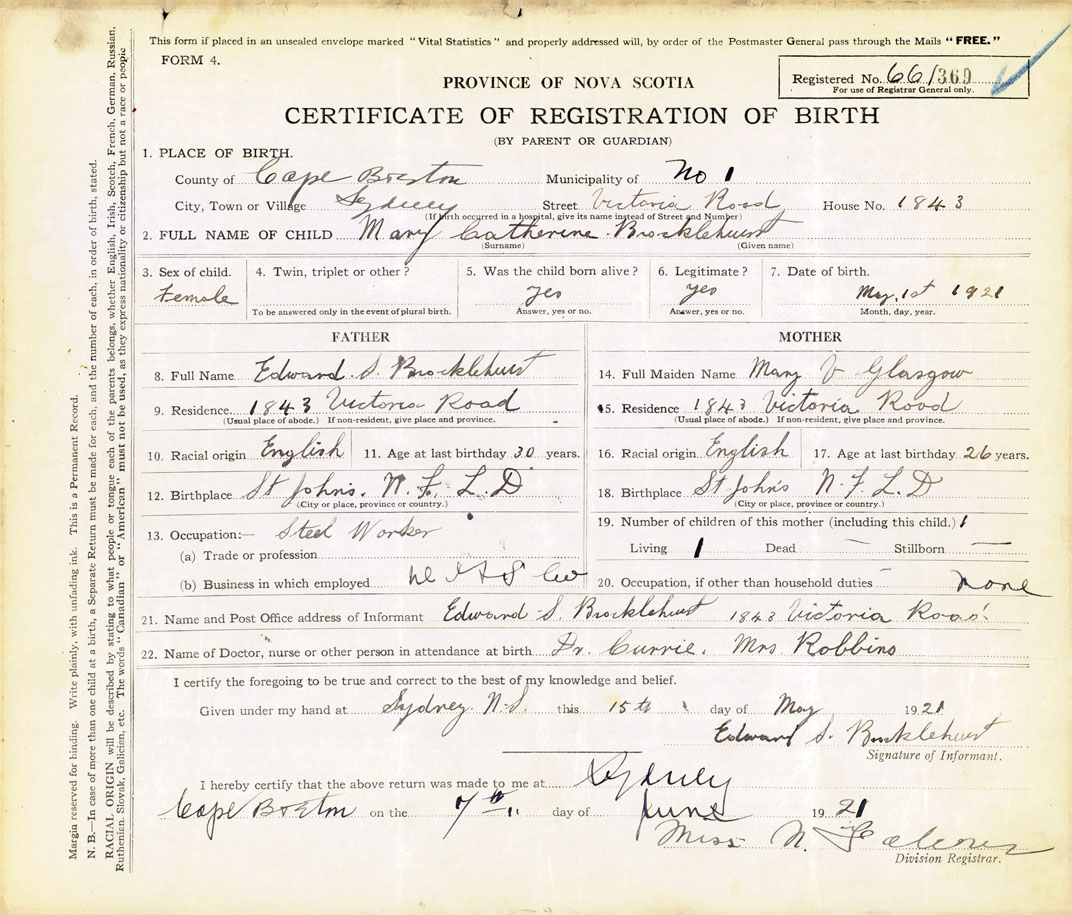 This form if placed in an unsealed envelope marked "Vital Statistics" and properly addressed will, by order of the Postmaster General pass through the Mails "FREE."
FORM 4.
Registered No. 66/360
For use of Registrar General only.
PROVINCE OF NOVA SCOTIA
CERTIFICATE OF REGISTRATION OF BIRTH
(BY PARENT OR GUARDIAN)
1. PLACE OF BIRTH.
County of Cape Breton Municipality of No 1
City, Town or Village Sydney Street Victoria Road House No. 1843
(If birth occurred in a hospital, give its name instead of Street and Number)
2. FULL NAME OF CHILD Mary Catherine Brocklehurst
(Surname) (Given name)
3. Sex of child. 4. Twin, triplet or other? 5. Was the child born alive? 6. Legitimate? 7. Date of birth.
Female yes yes May, 1st 1921
To be answered only in the event of plural birth. Answer, yes or no. Answer, yes or no. Month, day, year.
FATHER
8. Full Name Edward S. Brocklehurst
9. Residence 1843 Victoria Road
(Usual place of abode.) If non-resident, give place and province.
10. Racial origin English 11. Age at last birthday 30 years.
12. Birthplace St John's. N. F. L. D
(City or place, province or country.)
13. Occupation:— Steel Worker
(a) Trade or profession
(b) Business in which employed
MOTHER
14. Full Maiden Name Mary V Glasgow
15. Residence 1843 Victoria Road
(Usual place of abode.) If non-resident, give place and province.
16. Racial origin English 17. Age at last birthday 26 years.
18. Birthplace St John's N. F. L. D
(City or place, province or country.)
19. Number of children of this mother (including this child.) 1
Living 1 Dead — Stillborn —
20. Occupation, if other than household duties none
21. Name and Post Office address of Informant Edward S. Brocklehurst 1843 Victoria Road
22. Name of Doctor, nurse or other person in attendance at birth Dr. Currie. Mrs Robbins
I certify the foregoing to be true and correct to the best of my knowledge and belief.
Given under my hand at Sydney N.S. this 15th day of May 1921
Edward S. Brocklehurst
Signature of Informant.
I hereby certify that the above return was made to me at Sydney
Cape Breton on the 7th day of June 1921
Miss N.
Division Registrar.
Margin reserved for binding. Write plainly, with unfading ink. This is a Permanent Record.
N. B.—In case of more than one child at a birth, a Separate Return must be made for each, and the number of each, in order of birth, stated.
RACIAL ORIGIN will be described by stating to what people or tongue each of the parents belongs, whether English, Irish, Scotch, French, German, Russian,
Ruthenian, Slovak, Galician, etc. The words "Canadian" or "American" must not be used, as they express nationality or citizenship but not a race or people